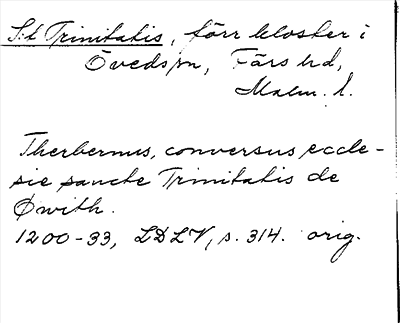 S:t Trinitatis, förr kloster i
Övedsjön, Färs hd,
Malm. l.
Therbernus, conversus eccle-
sie sancte Trinitatis de
Øwith.
1200-33, LDLV, s. 314. orig.